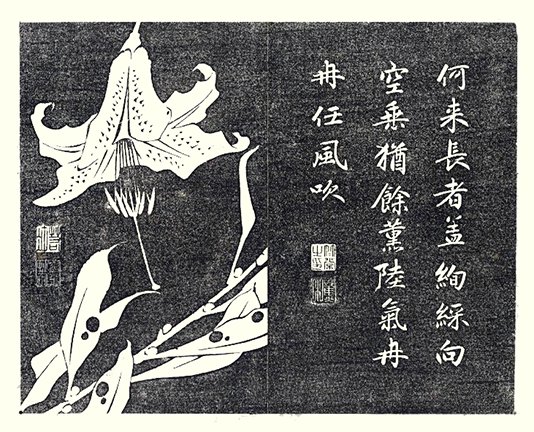 何来長者盖絢綵向
空垂猶餘薫陸氣冉
冉任風吹